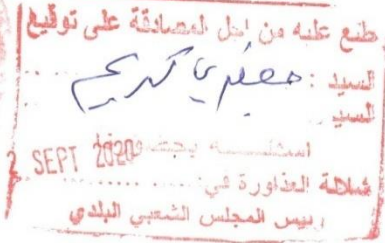 طلع عليه من اجل المصادقة على توقيع
السيد : جعفري كريم
السيد
SEPT 2020
شلالة العذاورة في
رئيس المجلس الشعبي البلدي